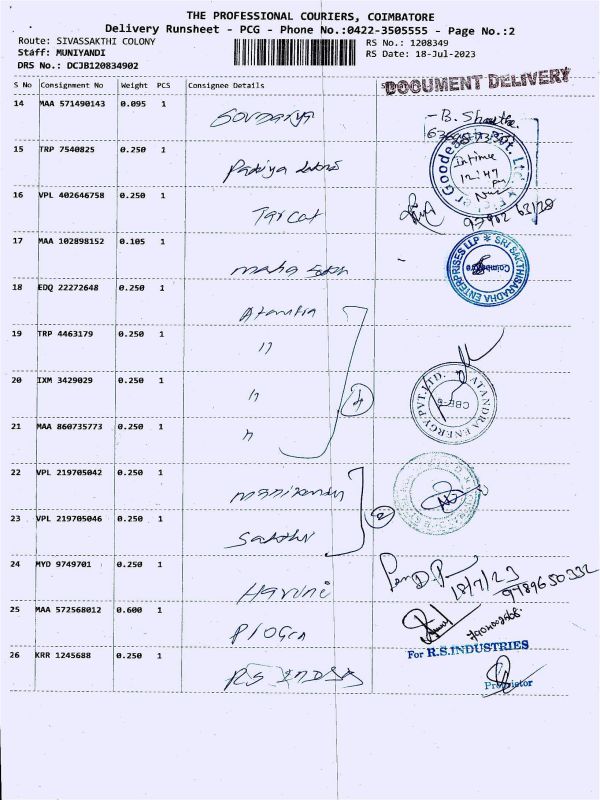 THE PROFESSIONAL COURIERS, COIMBATORE
Delivery Runsheet - PCG - Phone No.:0422-3505555 - Page No.:2
Route: SIVASSAKTHI COLONY
RS No.: 1208349
Staff: MUNIYANDI
RS Date: 18-Jul-2023
DRS No.: DCJB120834902
S No Consignment No Weight PCS Consignee Details
DOCUMENT DELIVERY
14 MAA 571490143 0.095 1
Soundarya
15 TRP 7540825 0.250 1
Intime
12:47
16 VPL 402646758 0.250 1
Tarcat
17 MAA 102898152 0.105 1
SRI SAKTHISARADHA ENTERPRISES LLP
Coimbatore
18 EDQ 22272648 0.250 1
19 TRP 4463179 0.250 1
"
20 IXM 3429029 0.250 1
"
ATANDRA ENERGY PVT. LTD.
21 MAA 860735773 0.250 1
"
22 VPL 219705042 0.250 1
23 VPL 219705046 0.250 1
Sakthi
24 MYD 9749701 0.250 1
Harini
18/7/23
9789650332
25 MAA 572568012 0.600 1
26 KRR 1245688 0.250 1
For R.S.INDUSTRIES
Proprietor